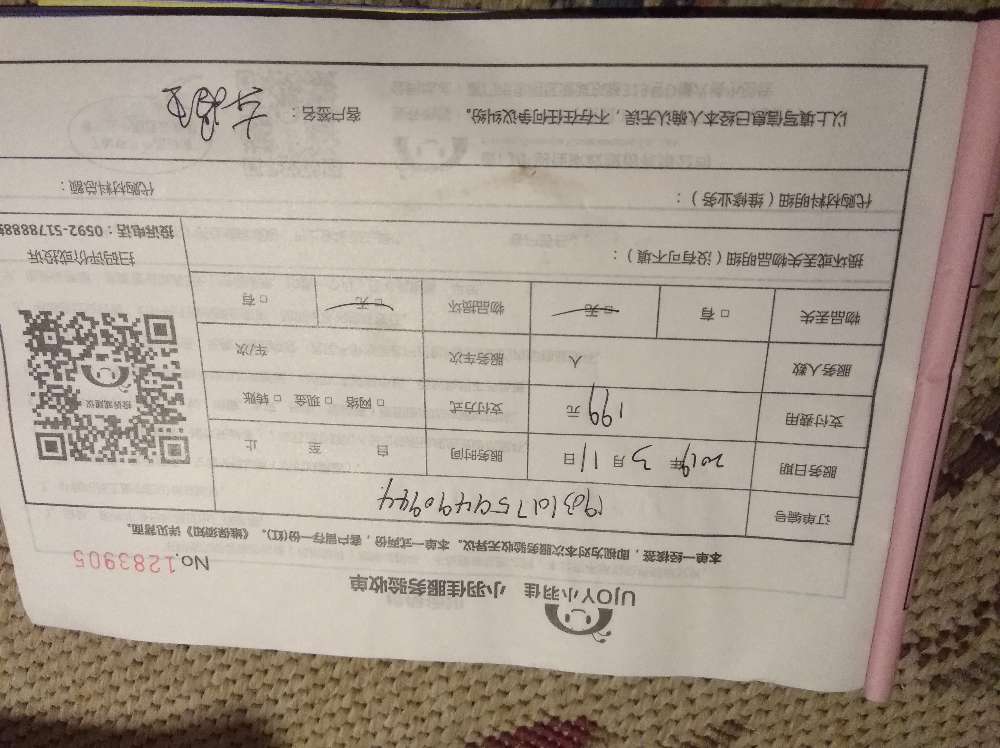 UJOY小羽佳 小羽佳服务验收单
No.1283905
本单一经接签，即视为对本次服务验收无异议。本单一式两份，客户留存一份(红)。《维保须知》详见背面。
订单编号
服务日期 2019年3月11日 服务时间 自 至 止
支付费用 199元 支付方式 □网络 □现金 □转账
服务人数 人 服务车次 车/次
物品丢失 □有 □无 物品损坏 □无 □有
投诉或建议
扫码评价或投诉
损坏或丢失物品明细（没有可不填）：
代购材料明细（维修业务）： 代购材料总额：
以上填写信息已经本人确认无误，不存在任何争议纠纷。 客户签名：